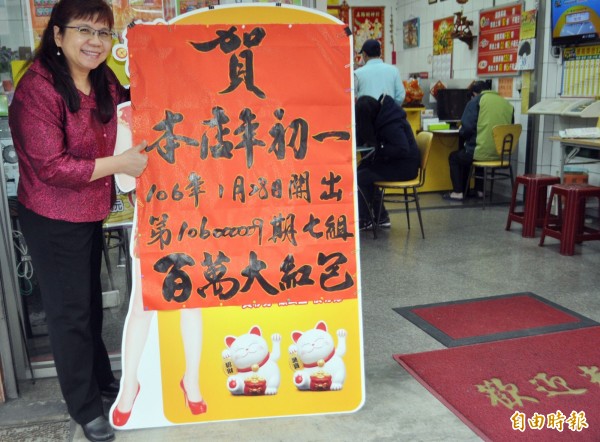 賀
本店年初一
106年1月28日開出
第106000009期七組
百萬大紅包
歡迎
自由時報